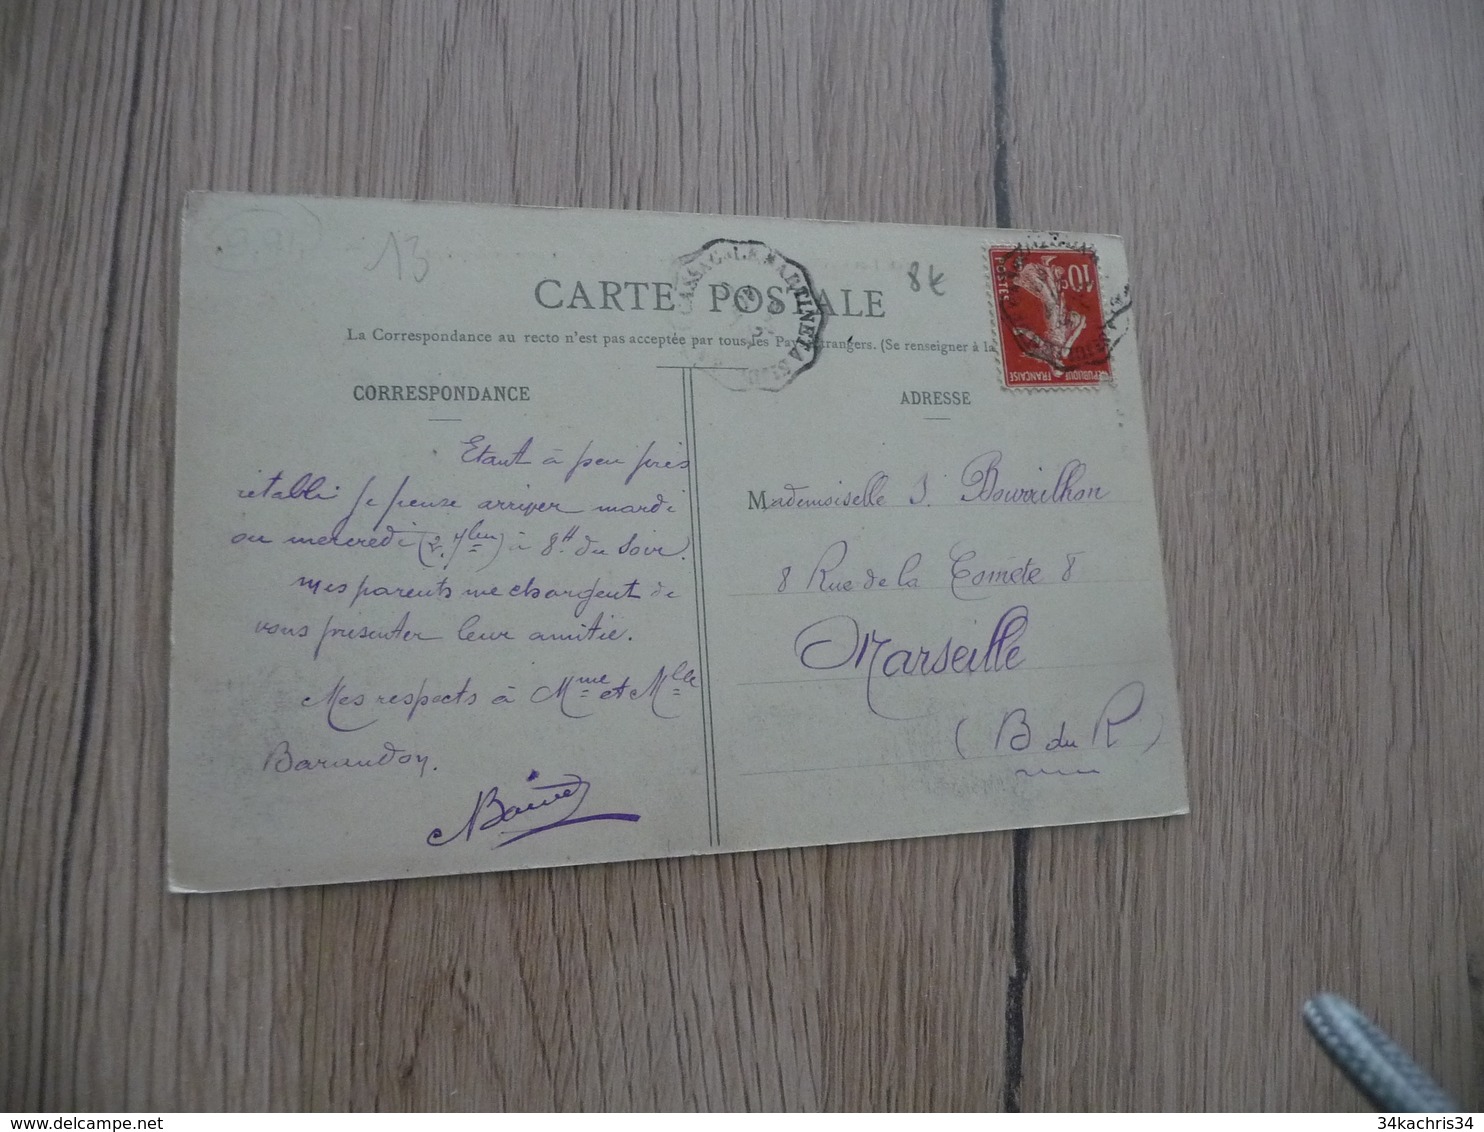 13
8€
CARTE POSTALE
La Correspondance au recto n'est pas acceptée par tous les Pays étrangers. (Se renseigner à la
10c
POSTES
REPUBLIQUE FRANÇAISE
MARTINET A
CORRESPONDANCE
Etant à peu près
rétabli je pense arriver mardi
ou mercredi (2 7bre) à 8h du soir.
Mes parents me chargent de
vous présenter leur amitié.
Mes respects à Mme et Mlle
Baraudon.
ADRESSE
Mademoiselle J. Bourrilhon
8 Rue de la Comète 8
Marseille
(B du R)
34kachris34